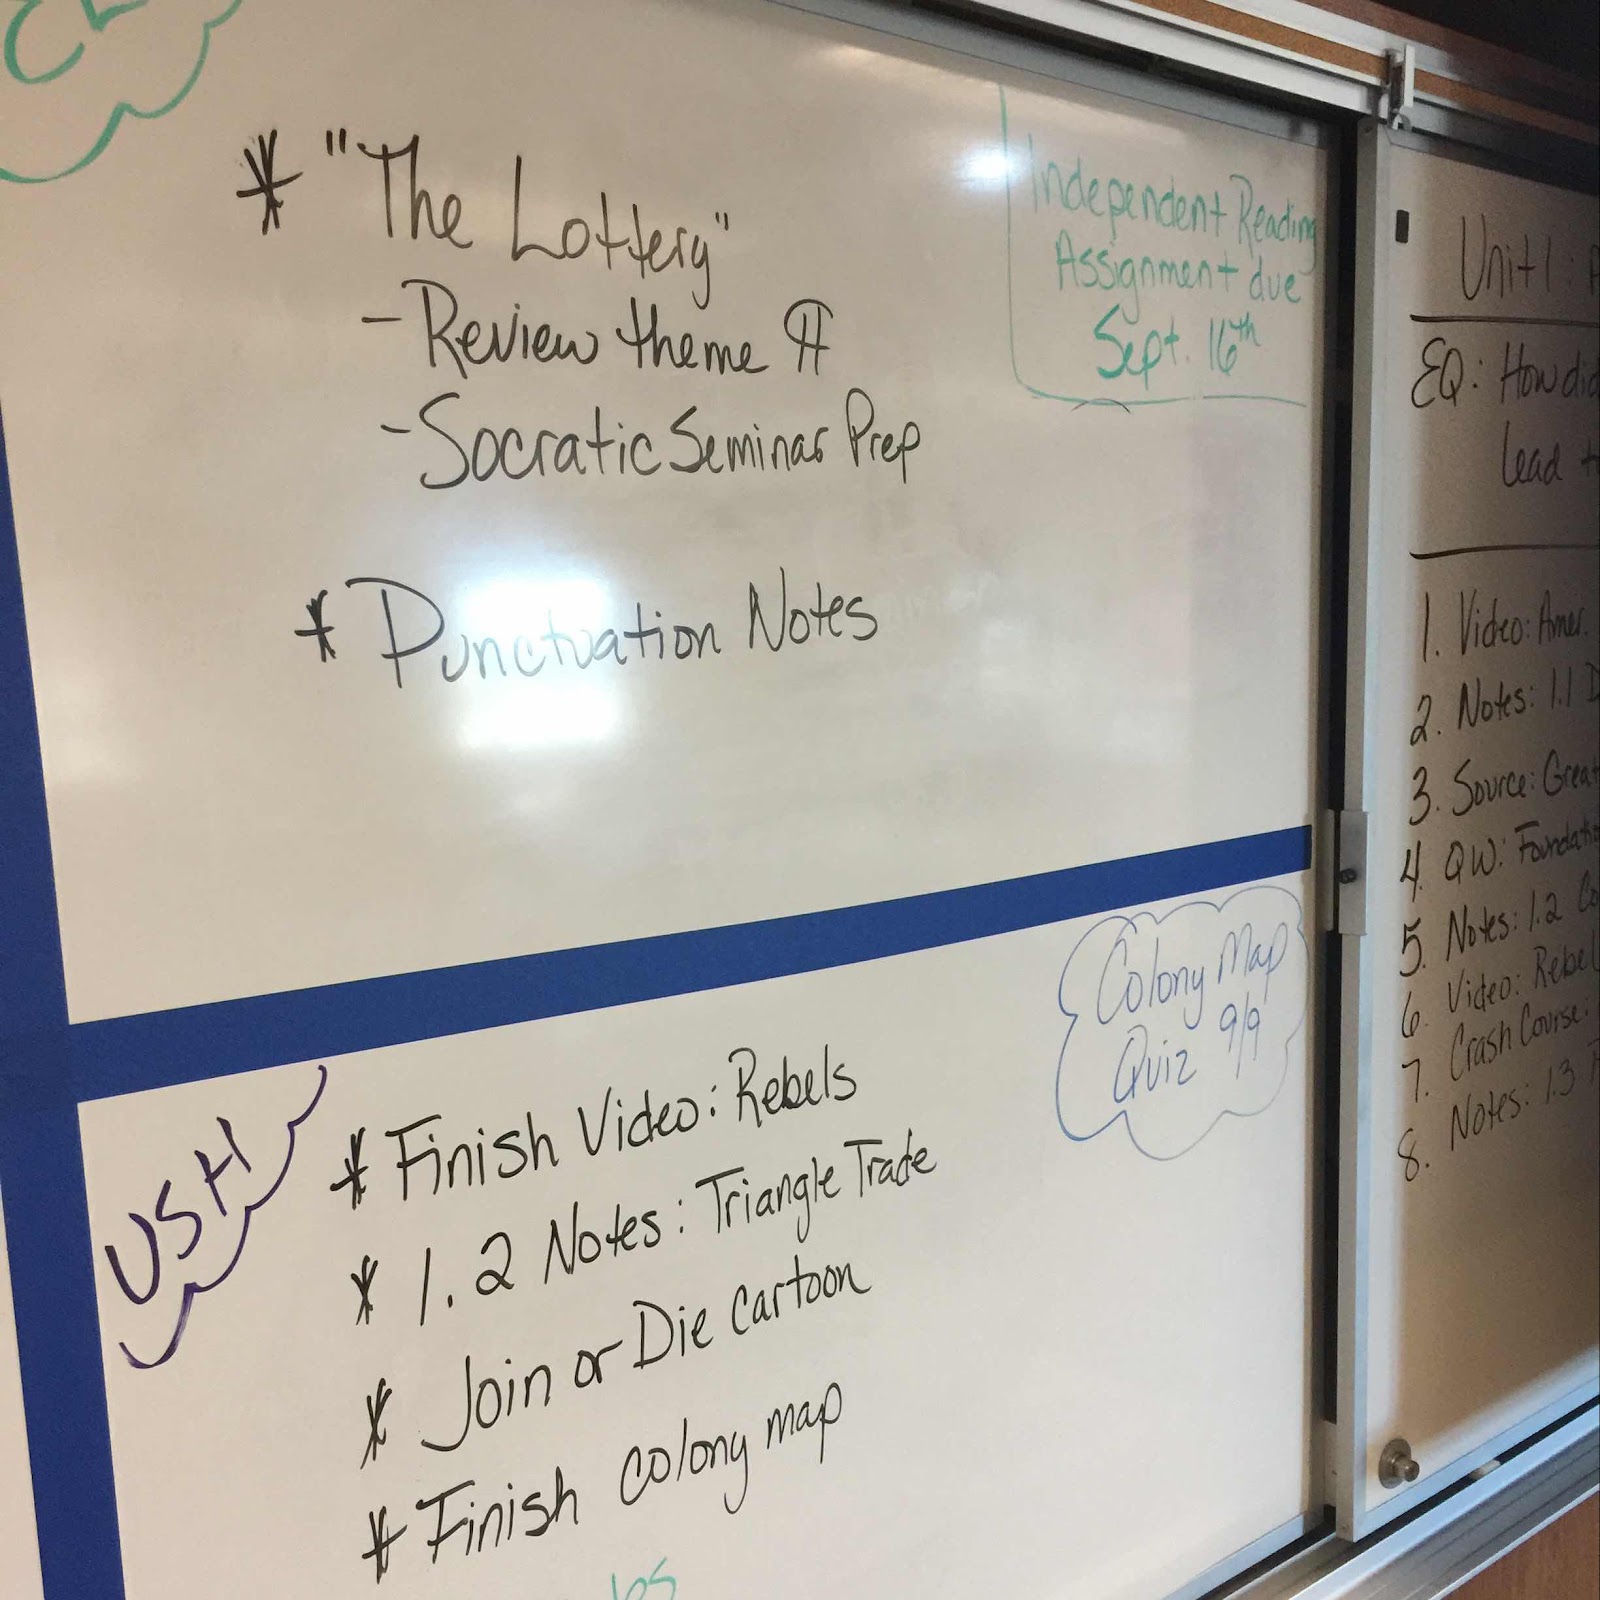 * "The Lottery"
- Review theme ¶
- Socratic Seminar Prep
* Punctuation Notes
Independent Reading
Assignment due
Sept. 16th
USH
* Finish Video: Rebels
* 1.2 Notes: Triangle Trade
* Join or Die cartoon
* Finish colony map
Colony Map
Quiz 9/9
Unit 1:
EQ: How did
lead
1. Video: Amer.
2. Notes: 1.1
3. Source: Great
4. QW:
5. Notes: 1.2
6. Video: Rebel
7. Crash Course:
8. Notes: 1.3